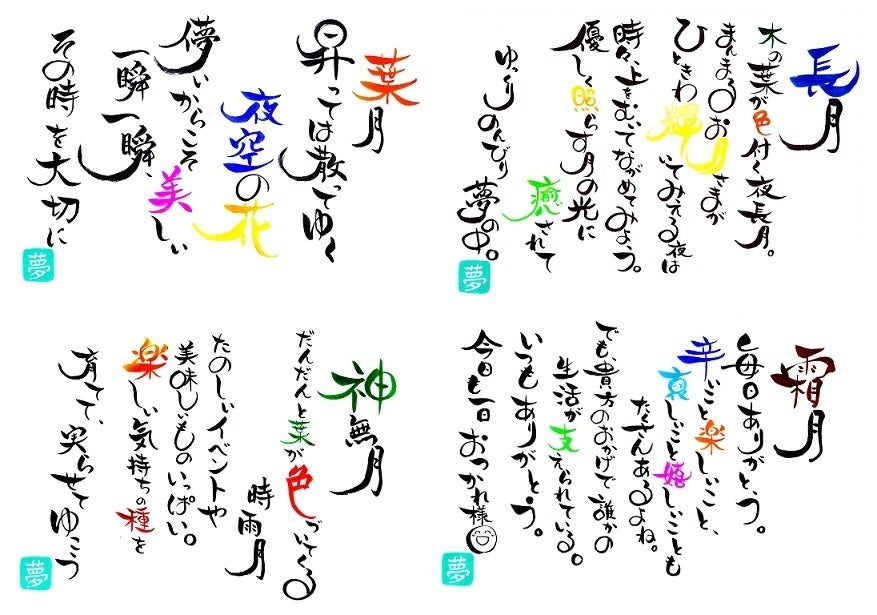 葉月
昇っては散ってゆく
夜空の花
儚いからこそ
美しい
一瞬一瞬、
その時を大切に
夢
長月
木の葉が色付く夜長月。
まんまるお月さまが
ひときわ輝いてみえる夜は
時々、上をむいてながめてみよう。
優しく照らす月の光に
癒されて
ゆっくりのんびり夢の中。
夢
神無月
だんだんと葉が色づいてくる
時雨月
たのしいイベントや
美味しいものいっぱい。
楽しい気持ちの種を
育てて、実らせてゆこう
夢
霜月
毎日ありがとう。
辛いこと楽しいこと、
哀しいこと嬉しいことも
たくさんあるよね。
でも貴方のおかげで誰かの
生活が支えられている。
いつもありがとう。
今日も一日おつかれ様
夢